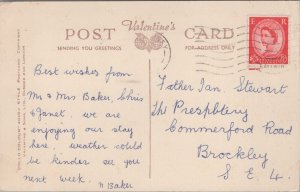 POST Valentine's CARD
SENDING YOU GREETINGS
FOR ADDRESS ONLY
E R
Best wishes from
Mr & Mrs Baker, Chris
& Janet, we are
enjoying our stay
here, weather could
be kinder see you
next week.
M Baker
Father Ian Stewart
The Presbptery
Commerford Road
Brockley
S. E. 4.